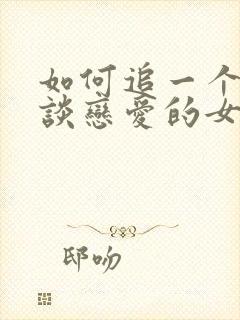 如何追一个
談戀愛的女
邸吻